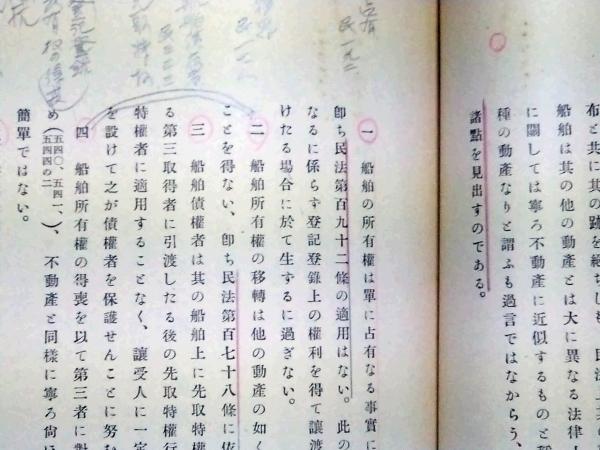 布と共に其の跡を絶ちしも、民法上其の
船舶は其の他の動產とは大に異なる法律上
に關しては寧ろ不動產に近似するものと
種の動產なりと謂ふも過言ではなからう、
諸點を見出すのである。
一 船舶の所有權は單に占有なる事實に
卽ち民法第百九十二條の適用はない。此の
なるに係らず登記登錄上の權利を得て讓渡
けたる場合に於て生するに過ぎない。
二 船舶所有權の移轉は他の動產の如く
ことを得ない、卽ち民法第百七十八條に依
三 船舶債權者は其の船舶上に先取特權
る第三取得者に引渡したる後の先取特權行
特權者に適用することなく、讓受人に一定
を設けて之が債權者を保護せんことに努む
四 船舶所有權の得喪を以て第三者に對
め(五四〇、五四一、五四四の二)、不動產と同樣に寧ろ尙ほ
簡單ではない。
占有
民一九二
民一七八
民三三三
先取特權
登記登錄